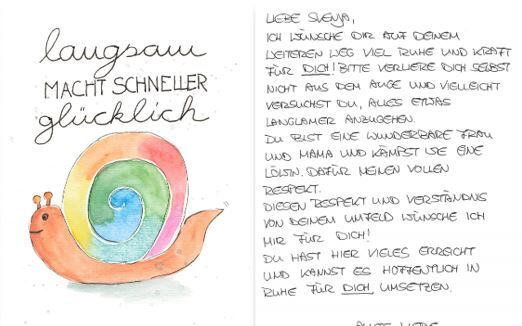 langsam
MACHT SCHNELLER
glücklich
LIEBE SVENJA,
ICH WÜNSCHE DIR AUF DEINEM
WEITEREN WEG VIEL RUHE UND KRAFT
FÜR DICH! BITTE VERLIERE DICH SELBST
NICHT AUS DEM AUGE UND VIELLEICHT
VERSUCHST DU, ALLES ETWAS
LANGSAMER ANZUGEHEN.
DU BIST EINE WUNDERBARE FRAU
UND MAMA UND KÄMPFST WIE EINE
LÖWIN. DAFÜR MEINEN VOLLEN
RESPEKT.
DIESEN RESPEKT UND VERSTÄNDNIS
VON DEINEM UMFELD WÜNSCHE ICH
MIR FÜR DICH!
DU HAST HIER VIELES ERREICHT
UND KANNST ES HOFFENTLICH IN
RUHE FÜR DICH UMSETZEN.
ALLES LIEBE